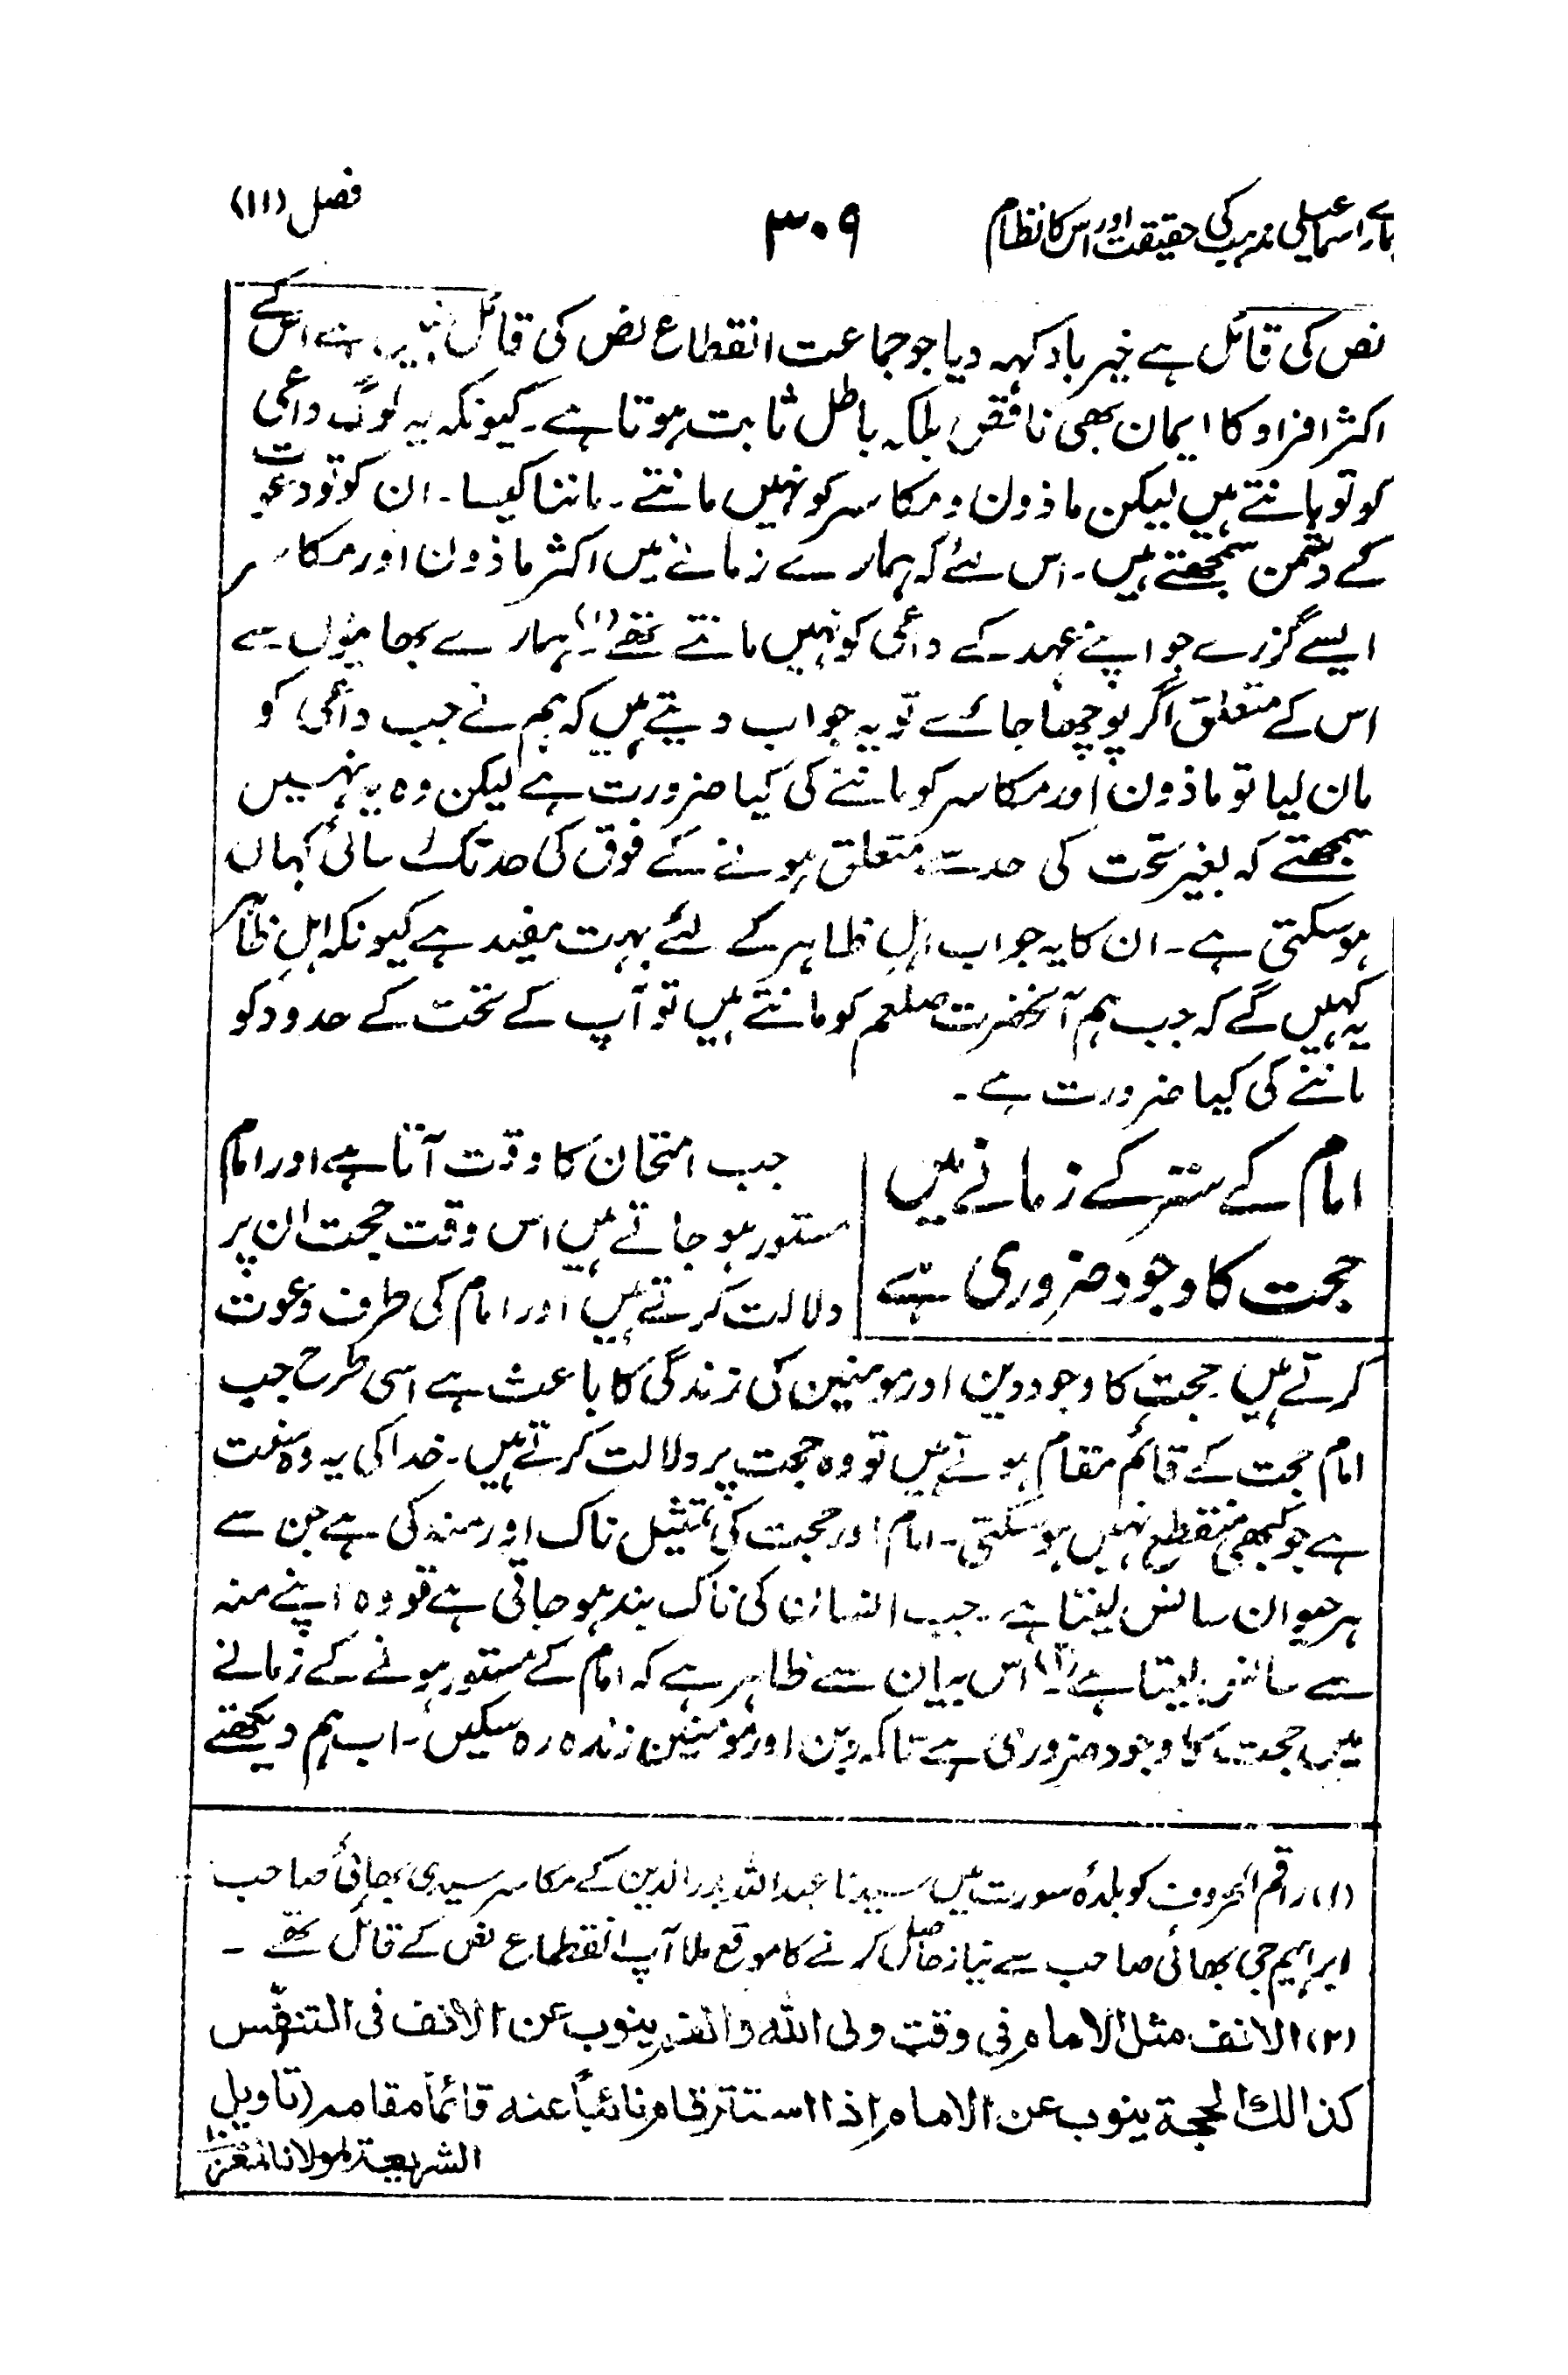 ہمارے اسماعیلی مذہب کی حقیقت اور اس کا نظام ۳۰۹ فصل (۱۱)
نص کی قائل ہے خیرباد کہہ دیا جو جماعت انقطاع نص کی قائل نہیں ہے اس کے
اکثر افراد کا ایمان بھی ناقص بلکہ باطل ثابت ہوتا ہے۔ کیونکہ یہ لوگ داعی
کو تو مانتے ہیں لیکن ماذون و مکاسر کو نہیں مانتے۔ ماننا کیسا۔ ان کو تو دعوت
کے دشمن سمجھتے ہیں۔ اس لئے کہ ہمارے زمانے میں اکثر ماذون اور مکاسر
ایسے گزرے جو اپنے عہد کے داعی کو نہیں مانتے تھے (۱)۔ ہمارے بھائیوں سے
اس کے متعلق اگر پوچھا جائے تو یہ جواب دیتے ہیں کہ ہم نے جب داعی کو
مان لیا تو ماذون اور مکاسر کو ماننے کی کیا ضرورت ہے لیکن وہ یہ نہیں
سمجھتے کہ بغیر تحت کی حد سے متعلق ہونے کے فوق کی حد تک رسائی کہاں
ہو سکتی ہے۔ ان کا یہ جواب اہل ظاہر کے لئے بہت مفید ہے کیونکہ اہل ظاہر
یہ کہیں گے کہ جب ہم آنحضرت صلعم کو مانتے ہیں تو آپ کے تحت کے حدود کو
ماننے کی کیا ضرورت ہے۔
امام کے ستر کے زمانے میں
حجت کا وجود ضروری ہے
جب امتحان کا وقت آتا ہے اور امام
مستور ہو جاتے ہیں اس وقت حجت ان پر
دلالت کرتے ہیں اور امام کی طرف دعوت
کرتے ہیں۔ حجت کا وجود دین اور مومنین کی زندگی کا باعث ہے اسی طرح جب
امام حجت کے قائم مقام ہوتے ہیں تو وہ حجت پر دلالت کرتے ہیں۔ خدا کی یہ وہ سنت
ہے جو کبھی منقطع نہیں ہو سکتی۔ امام اور حجت کی تمثیل ناک اور منہ کی ہے جن سے
ہر حیوان سانس لیتا ہے۔ جب انسان کی ناک بند ہو جاتی ہے تو وہ اپنے منہ
سے سانس لیتا ہے (۲)۔ اس بیان سے ظاہر ہے کہ امام کے مستور ہونے کے زمانے
میں حجت کا وجود ضروری ہے تاکہ دین اور مومنین زندہ رہ سکیں۔ اب ہم دیکھتے
(۱) راقم الحروف کو بلدۂ سورت میں سیدنا عبداللہ بدرالدین کے مکاسر سیدی بھائی صاحب
ابراہیم جی بھائی صاحب سے نیاز حاصل کرنے کا موقع ملا آپ انقطاع نص کے قائل تھے۔
(۲) الانف مثل الامام فی وقت ولی اللہ والفم ینوب عن الانف فی التنفّس
کذالك الحجة ینوب عن الامام اذا استتر قام نائباً عنه قائماً مقامه (تاویل
الشریعة لمولانا المعز)